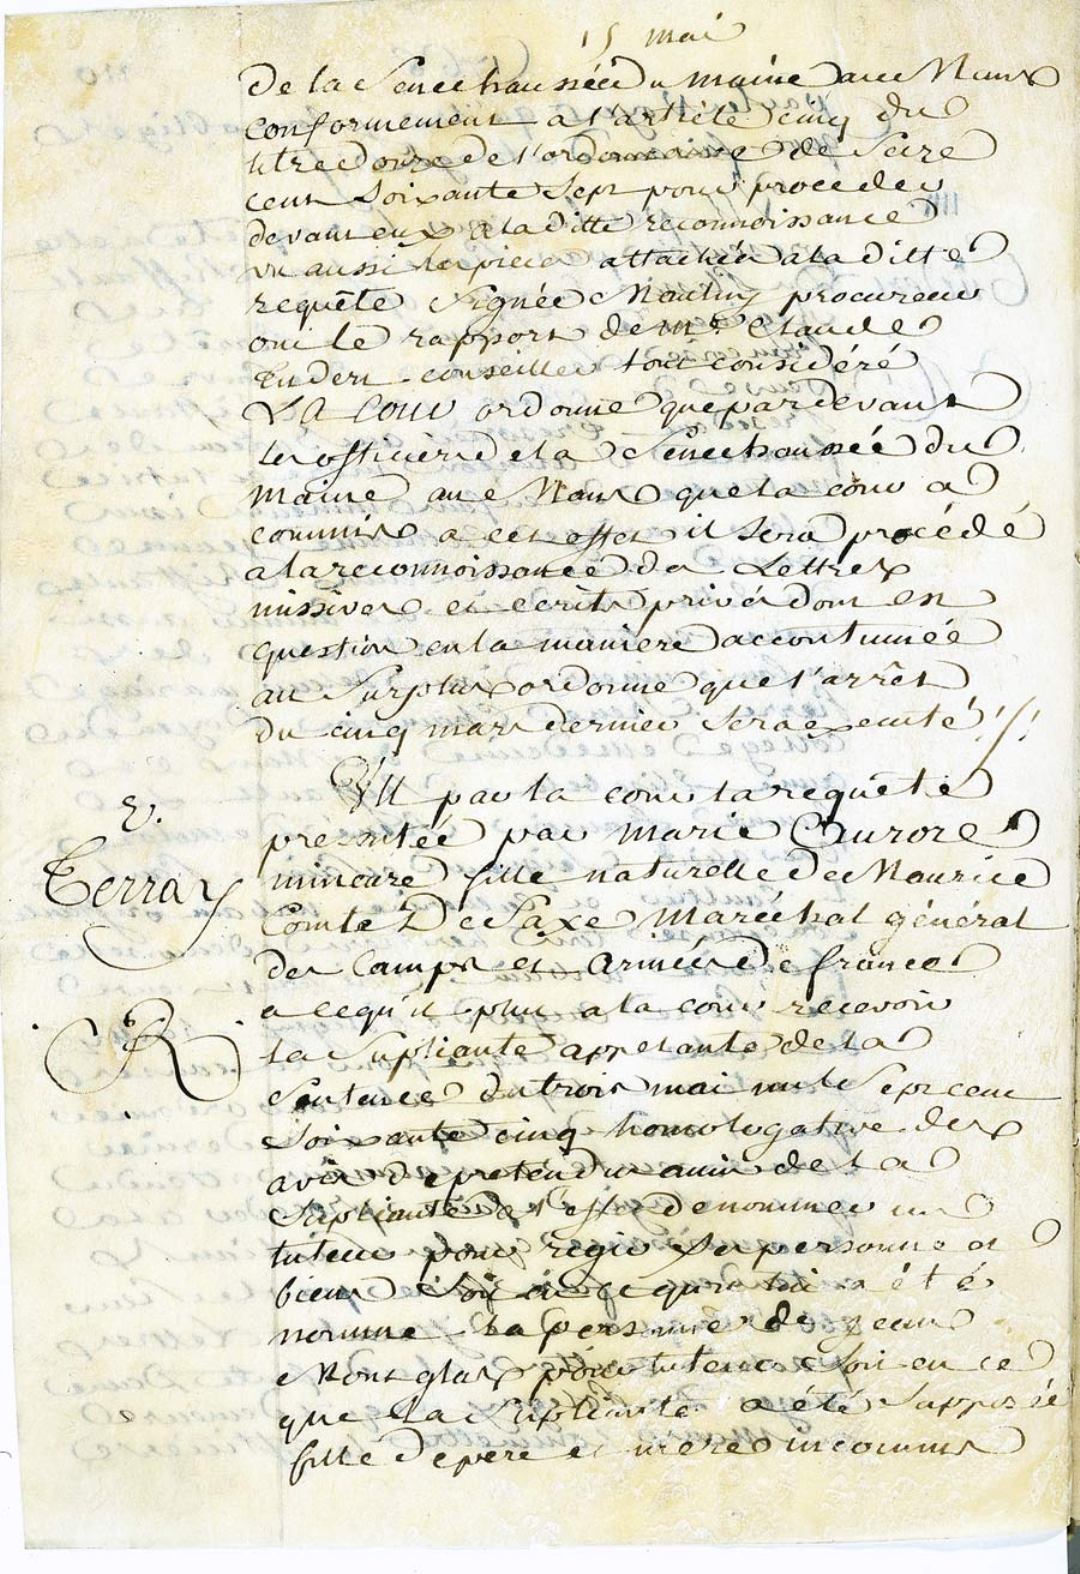 15 mai
de la Senechaussée du maine au Mans
conformement a l'article cinq du
titre douze de l'ordonnance de Seize
cent Soixante Sept pour proceder
devant eux a la ditte reconnoissance
vu aussi les pieces attachées a la ditte
requête Signée Moulin procureur
oui le rapport de Mr. Claude
Tudert conseiller tout considéré
LA Cour ordonne que pardevant
les officiers de la Senechaussée du
maine au Mans que la cour a
commis a cet effet il Sera procédé
a la reconnoissance des Lettres
missives et ecrits privés dont est
question en la maniere accoutumée
au Surplus ordonne que l'arrêt
du cinq mars dernier Sera executé
VU par la cour la requête
presentée par Marie Aurore
mineure fille naturelle de Maurice
Comte De Saxe Maréchal général
des Camps et Armées De france
a ce qu'il plut a la cour recevoir
la Supliante appelante de la
Sentence du trois mai mil Sept cent
Soixante cinq homologative des
avis de pretendus amis de la
Supliante a l'effet de nommer un
tuteur pour regir Sa personne et
biens Soit en ce qu'on lui a été
nommé la personne de jean
Montglas pour tuteur Soit en ce
que La Supliante a été Supposée
fille de pere et mere inconnus
2.
Terray
R